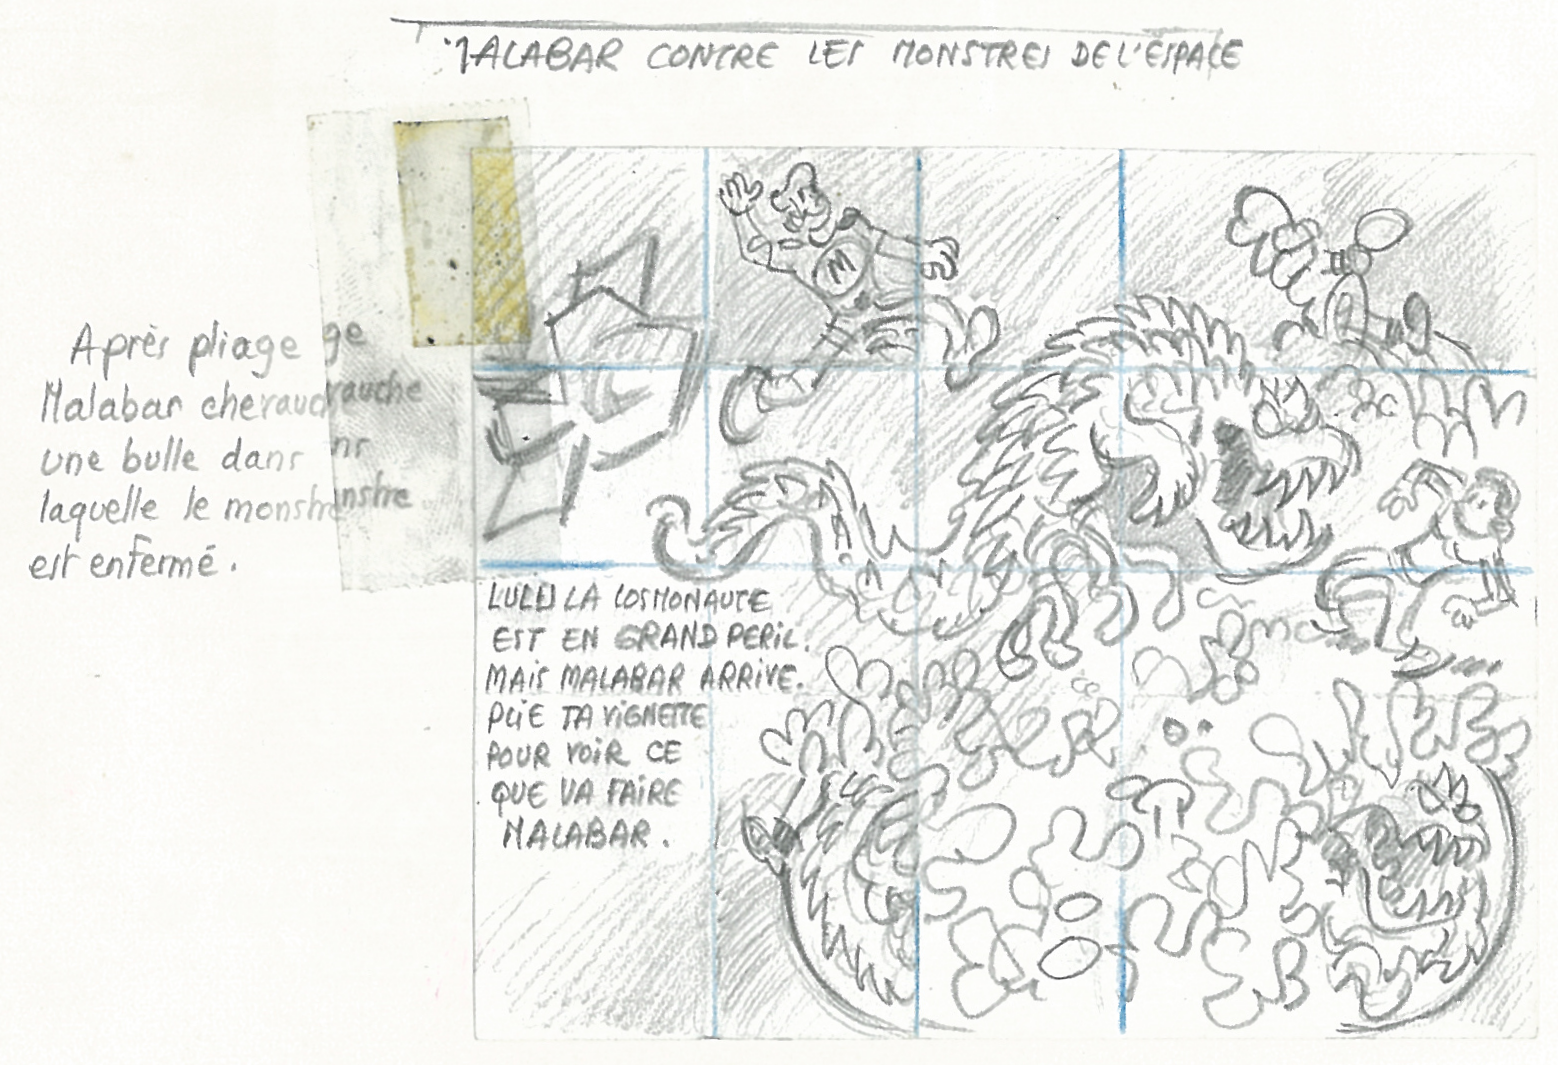 MALABAR CONTRE LES MONSTRES DE L'ESPACE
Après pliage ge
Malabar chevauche rauche
une bulle dans ns
laquelle le monstre nstre
est enfermé.
M
LULU LA COSMONAUTE
EST EN GRAND PERIL.
MAIS MALABAR ARRIVE.
PLIE TA VIGNETTE
POUR VOIR CE
QUE VA FAIRE
MALABAR.